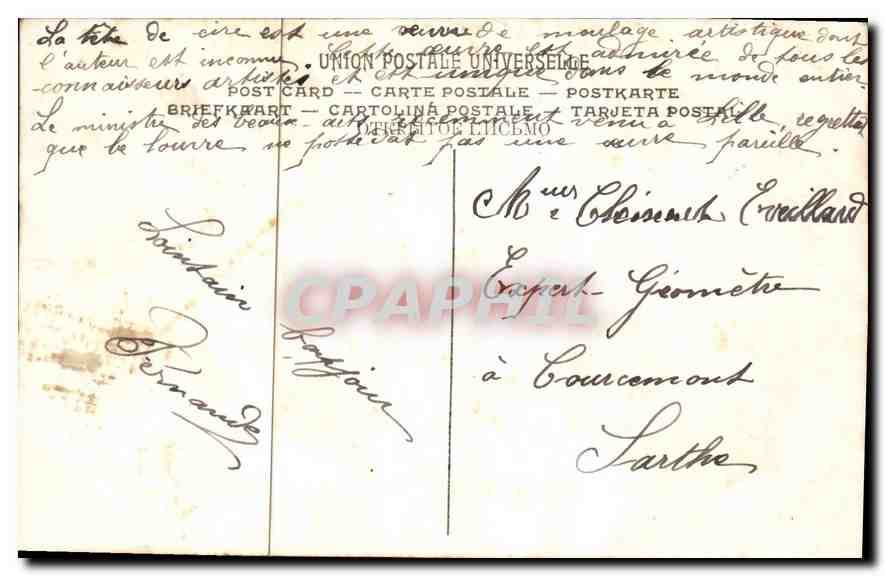 La tête de cire est une œuvre de moulage artistique dont
l'auteur est inconnu. Cette œuvre est admirée de tous les
connaisseurs artistes et est unique dans le monde entier.
Le ministre des beaux-arts, récemment venu à Lille, regrettait
que le louvre ne possédat pas une œuvre pareille.
UNION POSTALE UNIVERSELLE
POST CARD — CARTE POSTALE — POSTKARTE
BRIEFKAART — CARTOLINA POSTALE — TARJETA POSTAL
ОТКРЫТОЕ ПИСЬМО
Lointain
bonjour
Fernande
Eveillard
Expert-Géomètre
à Courcemont
Sarthe
CPAPHIL